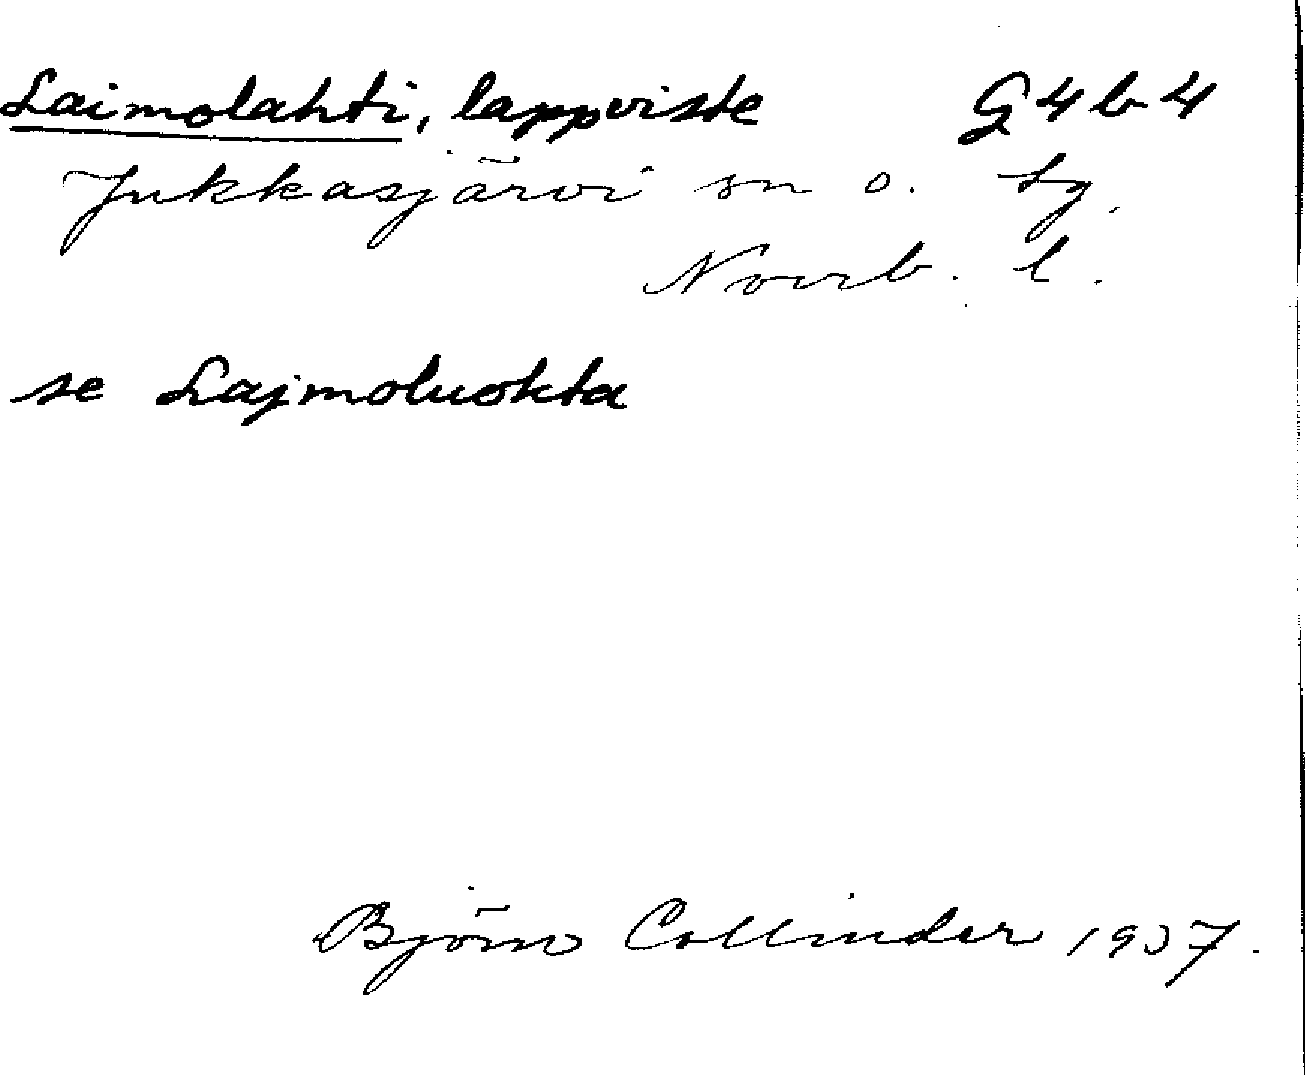 Laimolahti, lappviste G4b4
Jukkasjärvi sn o. tg.
Norrb. l.
se Lajmoluokta
Björn Collinder 1937.